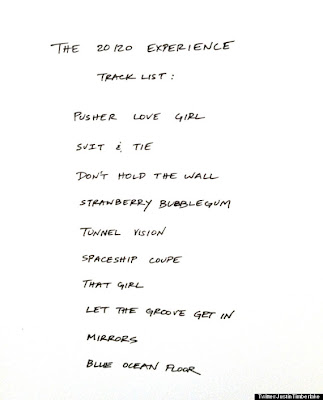 THE 20/20 EXPERIENCE
TRACK LIST:
PUSHER LOVE GIRL
SUIT & TIE
DON'T HOLD THE WALL
STRAWBERRY BUBBLEGUM
TUNNEL VISION
SPACESHIP COUPE
THAT GIRL
LET THE GROOVE GET IN
MIRRORS
BLUE OCEAN FLOOR
Twitter/JustinTimberlake